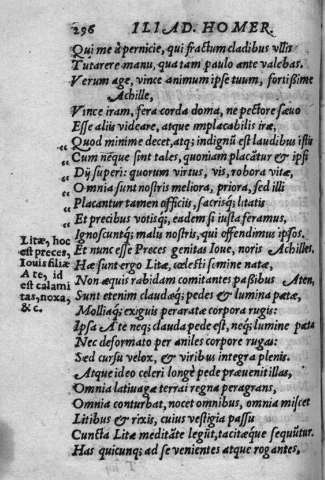 296 ILIAD. HOMER.
Qui me à pernicie, qui fractum cladibus vllis
Tutarere manu, qua tam paulo ante valebas.
Verum age, vince animum ipse tuum, fortißime
Achille,
Vince iram, fera corda doma, ne pectore sæuo
Esse aliis videare, atque implacabilis iræ,
„ Quod minime decet, atq; indignũ est laudibus istis
„ Cum neque sint tales, quoniam placãtur & ipsi
„ Dij superi: quorum virtus, vis, robora vitæ,
„ Omnia sunt nostris meliora, priora, sed illi
„ Placantur tamen officiis, sacrisq; litatis
„ Et precibus votisq;, eadem si iusta feramus,
„ Ignoscuntq; malu nostris, qui offendimus ipsos.
Et nunc esse Preces genitas Ioue, noris Achilles,
Hæ sunt ergo Litæ, cælesti semine natæ,
Non æquis rabidam comitantes paßibus Aten,
Sunt etenim claudæq; pedes & lumina pætæ,
Molliaq; exiguis peraratæ corpora rugis:
Ipsa Ate neq; clauda pede est, neq; lumine pæta
Nec deformato per aniles corpore rugas:
Sed cursu velox, & viribus integra plenis.
Atque ideo celeri longè pede præuenit illas,
Omnia latiuaga terrai regna peragrans,
Omnia conturbat, nocet omnibus, omnia miscet
Litibus & rixis, cuius vestigia passu
Cuncta Litæ meditãte legũt, tacitæque sequũtur.
Has quicunq; ad se venientes atque rogantes,
Litæ, hoc
est preces,
Iouis filiæ
Ate, id
est calami
tas, noxa,
& c.